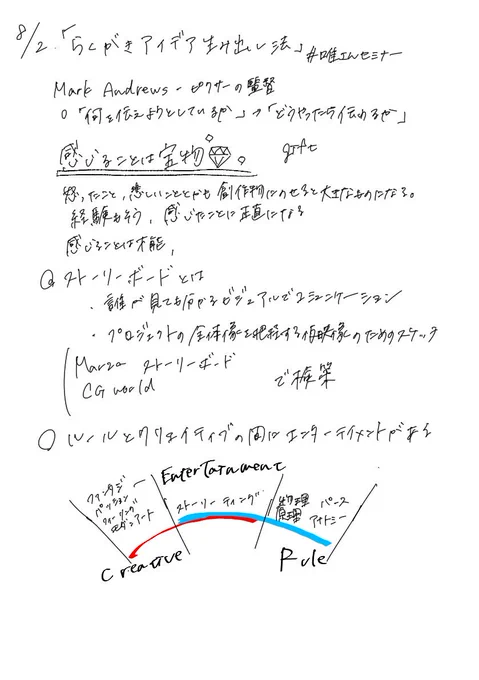 8/2.「らくがきアイデア生み出し方法」 #唯エんセミナー
Mark Andrews - ピクサーの監督
○「何を伝えようとしているか」→「どうやったら伝わるか」
感じることは宝物 gift
怒ったこと、悲しいこととかも創作物にのせると大きなものになる。
経験もそう、感じたことに正直になる
感じることは才能、
ストーリーボードとは
・誰が見ても分かるビジュアルでコミュニケーション
・プロジェクトの全体像を把握する仮映像のためのスケッチ
Marza ストーリーボード
CG world で検索
○ルールとクリエイティブの間にエンターテイメントがある
EnterTainment
ファンタジー
パッション
フィーリング
モダンアート
ストーリーティング
物理
原理
パース
アナトミー
Creative
Rule